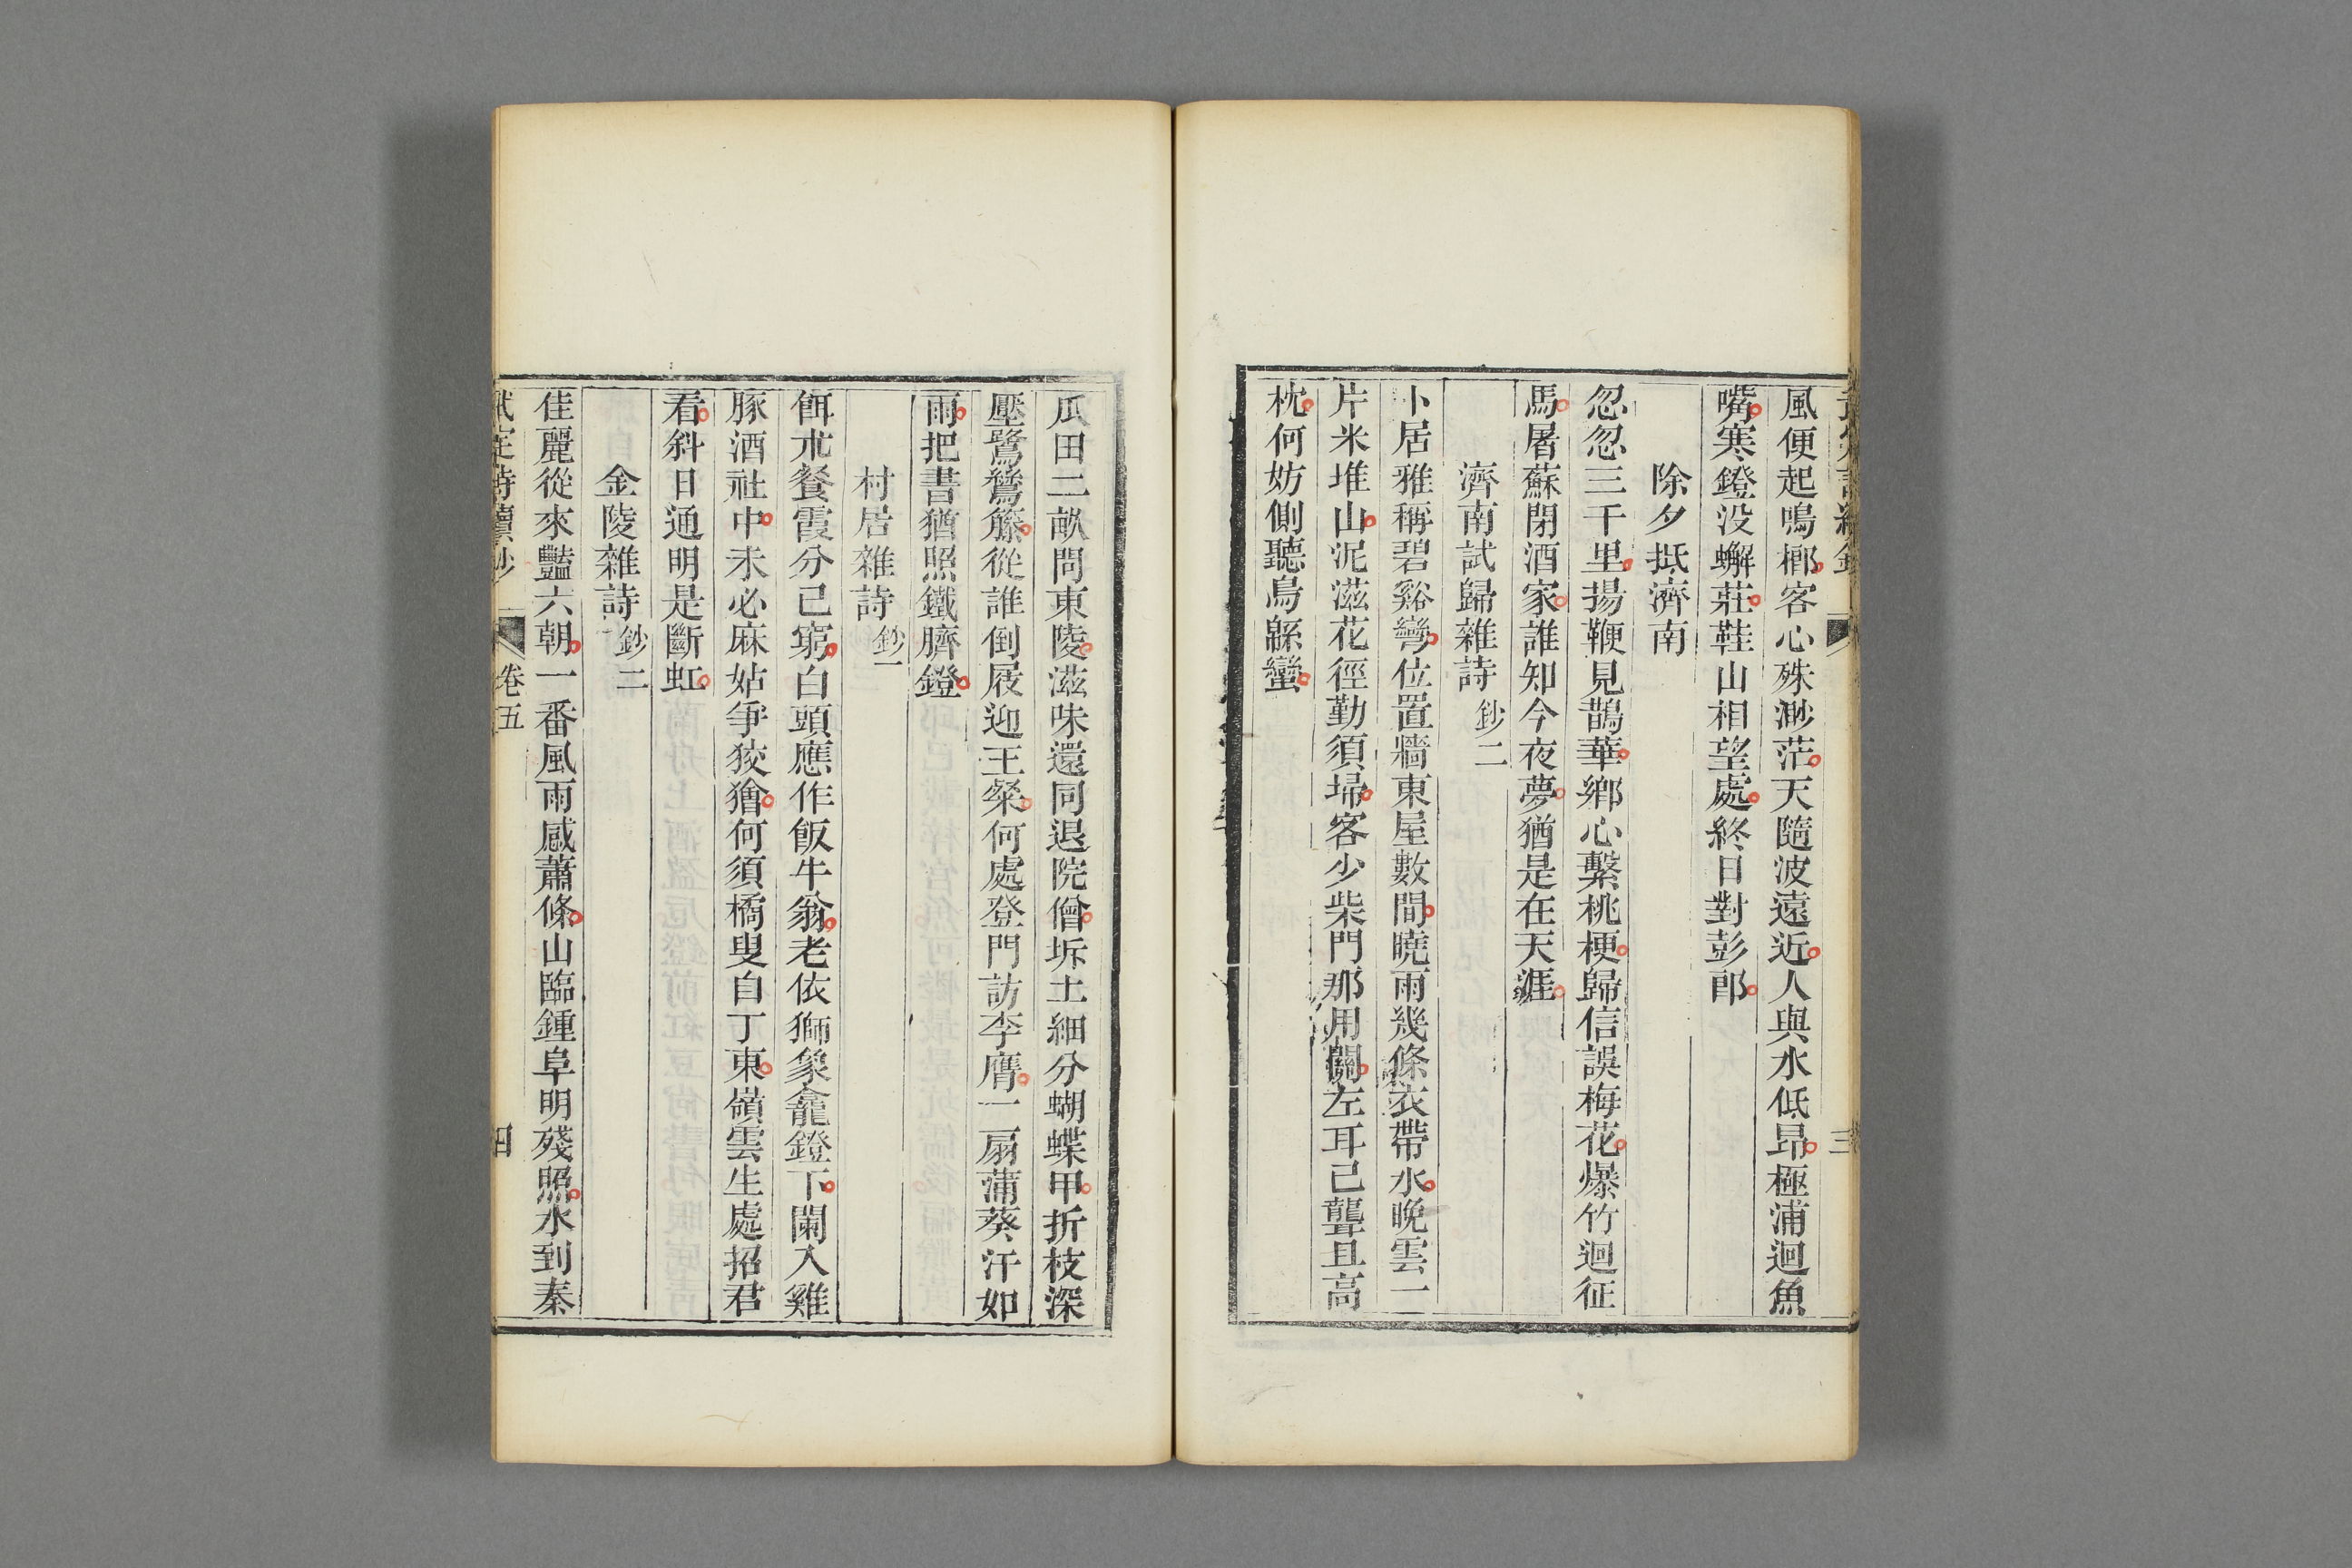 風便起鳴榔客心殊渺茫天隨波遠近人與水低昻極浦迴魚
嘴寒鐙没蠏莊鞋山相望處終日對彭郎
除夕抵濟南
忽忽三千里揚鞭見鵲華鄕心繫桃梗歸信誤梅花爆竹迴征
馬屠蘇閉酒家誰知今夜夢猶是在天涯
濟南試歸雜詩鈔二
卜居雅稱碧谿彎位置牆東屋數間曉雨幾條衣帶水晚雲一
片米堆山泥滋花徑勤須埽客少柴門那用關左耳已聾且高
枕何妨側聽鳥緜蠻
三
瓜田二畝問東陵滋味還同退院僧坼土細分蝴蝶甲折枝深
壓鷺鷥籐從誰倒屐迎王粲何處登門訪李膺一扇蒲葵汗如
雨把書猶照鐵臍鐙
村居雜詩鈔一
餌朮餐霞分已窮白頭應作飯牛翁老依獅象龕鐙下闌入雞
豚酒社中未必麻姑爭狡獪何須橘叟自丁東嶺雲生處招君
看斜日通明是斷虹
金陵雜詩鈔二
佳麗從來豔六朝一番風雨感蕭條山臨鍾阜明殘照水到秦
武定詩續鈔 卷五 四